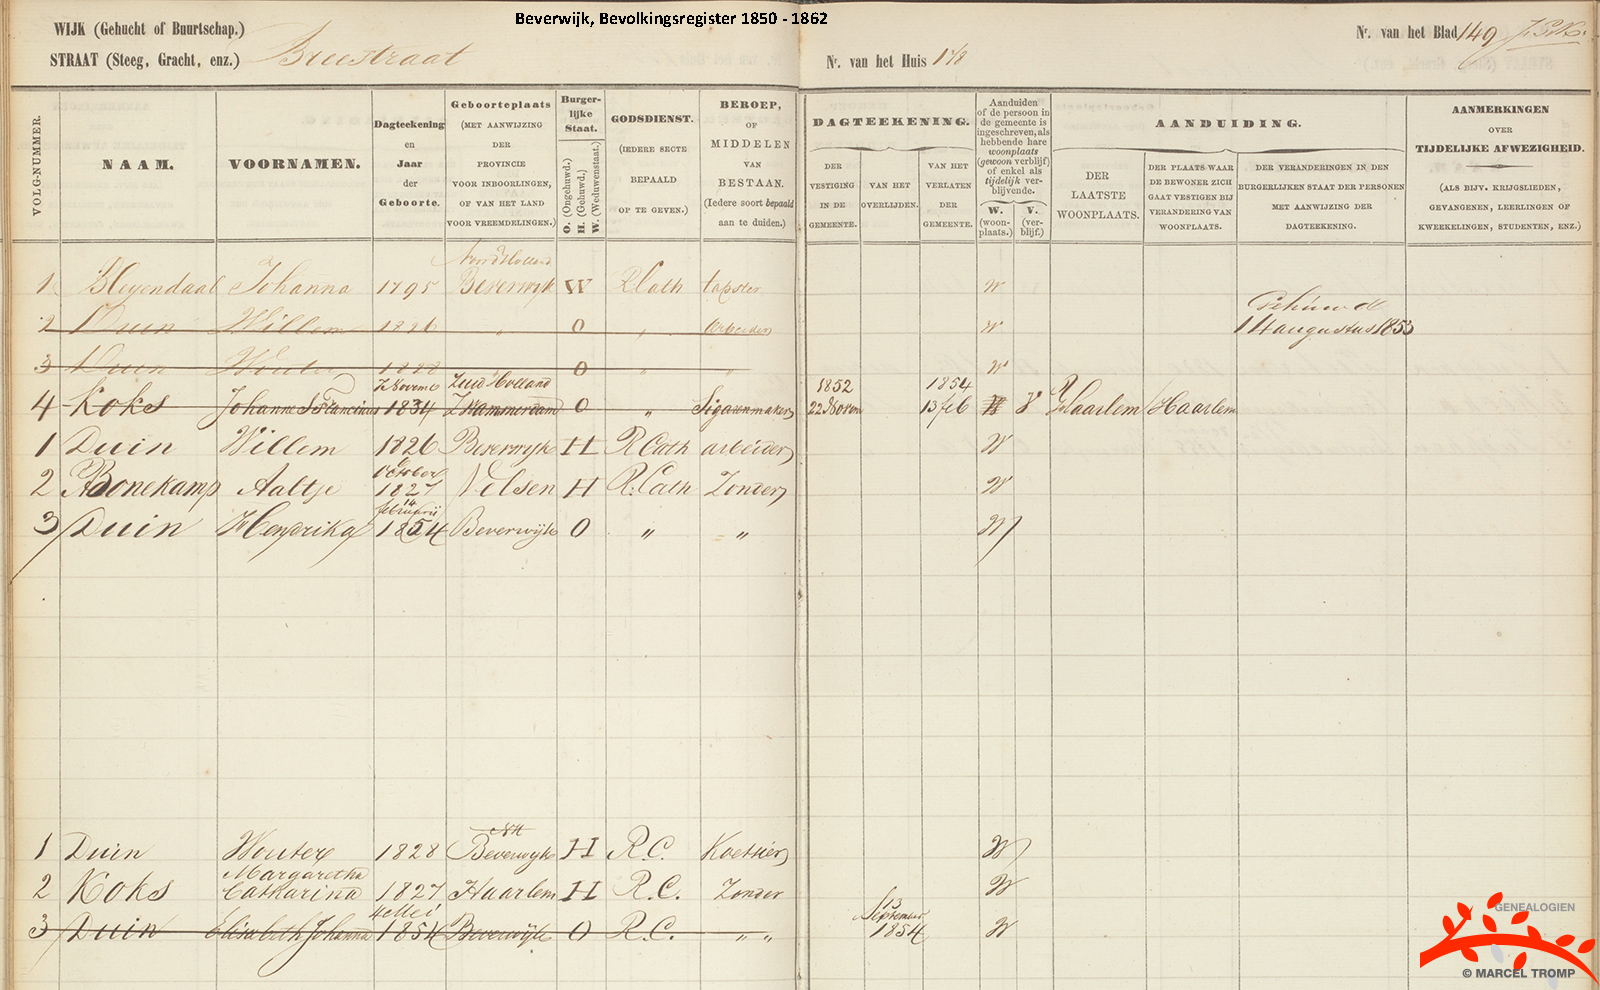 Beverwijk, Bevolkingsregister 1850 - 1862
WIJK (Gehucht of Buurtschap.)
STRAAT (Steeg, Gracht, enz.) Breestraat
Nr. van het Huis 178
Nr. van het Blad 149
VOLG-NUMMER.
NAAM.
VOORNAMEN.
Dagteekening
en
Jaar
der
Geboorte.
Geboorteplaats
(MET AANWIJZING
DER
PROVINCIE
VOOR INBOORLINGEN,
OF VAN HET LAND
VOOR VREEMDELINGEN.)
Burger-
lijke
Staat.
O. (Ongehuwd.)
H. (Gehuwd.)
W. (Weduwenstaat.)
GODSDIENST.
(IEDERE SECTE
BEPAALD
OP TE GEVEN.)
BEROEP,
OF
MIDDELEN
VAN
BESTAAN.
(Iedere soort bepaald
aan te duiden.)
DAGTEEKENING.
DER
VESTIGING
IN DE
GEMEENTE.
VAN HET
OVERLIJDEN.
VAN HET
VERLATEN
DER
GEMEENTE.
Aanduiden
of de persoon in
de gemeente is
ingeschreven, als
hebbende hare
woonplaats
(gewoon verblijf)
of enkel als
tijdelijk ver-
blijvende.
W.
(woon-
plaats.)
V.
(ver-
blijf.)
AANDUIDING.
DER
LAATSTE
WOONPLAATS.
DER PLAATS WAAR
DE BEWONER ZICH
GAAT VESTIGEN BIJ
VERANDERING VAN
WOONPLAATS.
DER VERANDERINGEN IN DEN
BURGERLIJKEN STAAT DER PERSONEN
MET AANWIJZING DER
DAGTEEKENING.
AANMERKINGEN
OVER
TIJDELIJKE AFWEZIGHEID.
(ALS BIJV. KRIJGSLIEDEN,
GEVANGENEN, LEERLINGEN OF
KWEEKELINGEN, STUDENTEN, ENZ.)
Noord Holland
1 Bleyendaal Johanna 1795 Beverwyk W R Cath tapster W
Gehuwd
2 Duin Willem 1826 " O " Arbeider W 14 augustus 1853
3 Duin Wouter 1828 O " " W
Zuid Holland 1852 1854
4 Koks Johannes Franciscus 1834 Zwammerdam O " Sigarenmaker 22 Novem 13 feb W V Haarlem Haarlem
1 Duin Willem 1826 Beverwyk H R Cath arbeider W
October
2 Bonekamp Aaltje 1827 Velsen H R. Cath Zonder W
14
februarij
3 Duin Hendrika 1854 Beverwijk O " " W
NH
1 Duin Wouter 1828 Beverwyk H R.C. Koetsier W
Margaretha
2 Koks Catharina 1827 Haarlem H R.C. Zonder W
4 Mei 13 September
3 Duin Elisabeth Johanna 1854 Beverwijk O R.C. " " 1854 W
GENEALOGIEN
© MARCEL TROMP